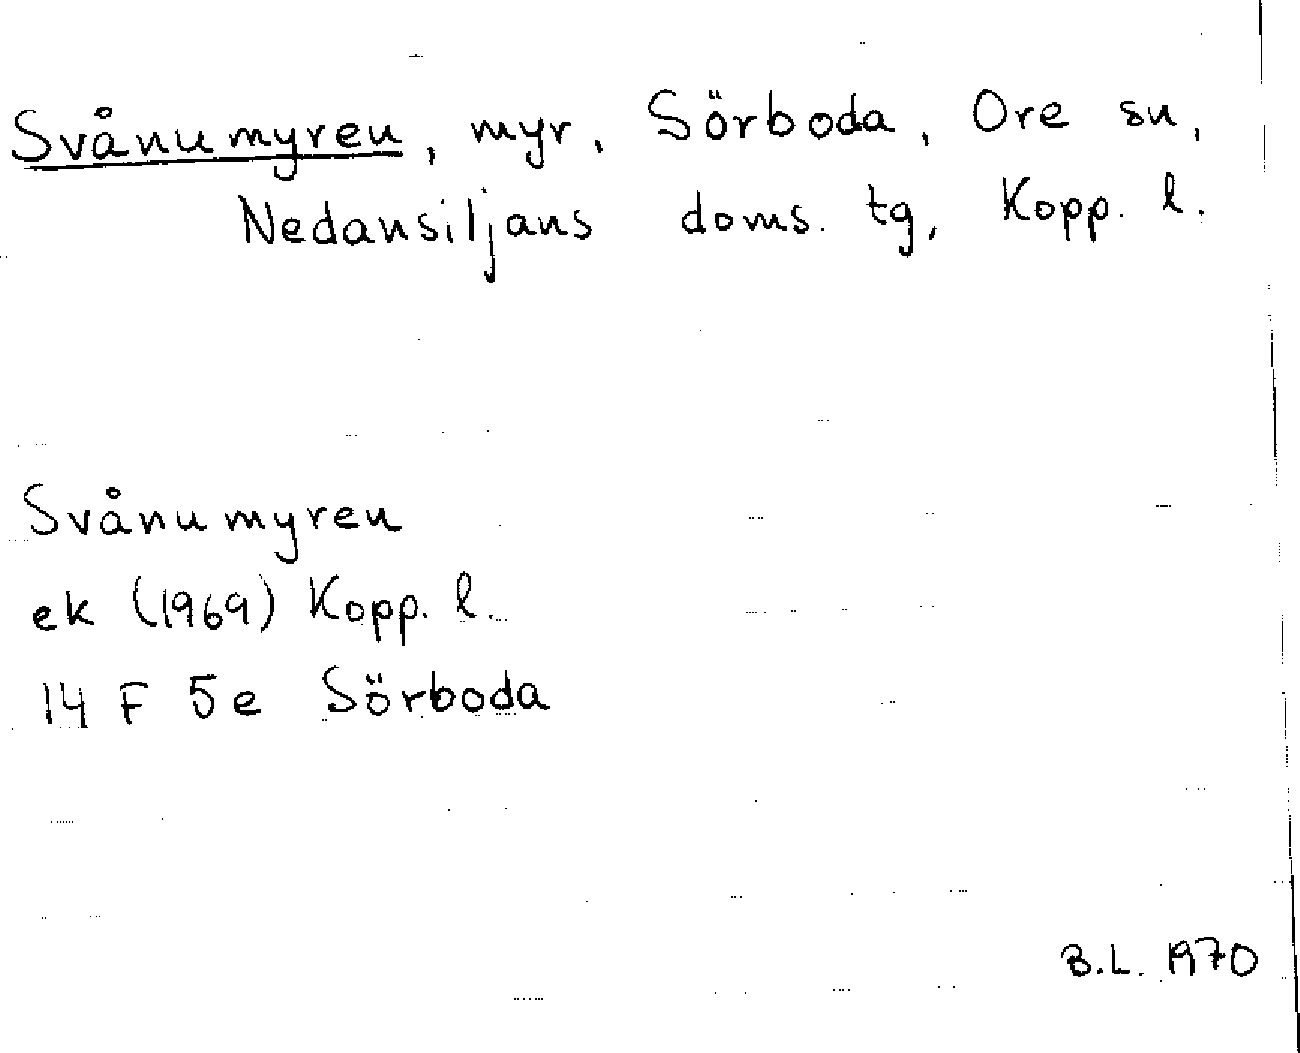 Svånumyren, myr, Sörboda, Ore sn,
Nedansiljans doms. tg, Kopp. l.
Svånumyren
ek (1969) Kopp. l.
14 F 5e Sörboda
B.L. 1970